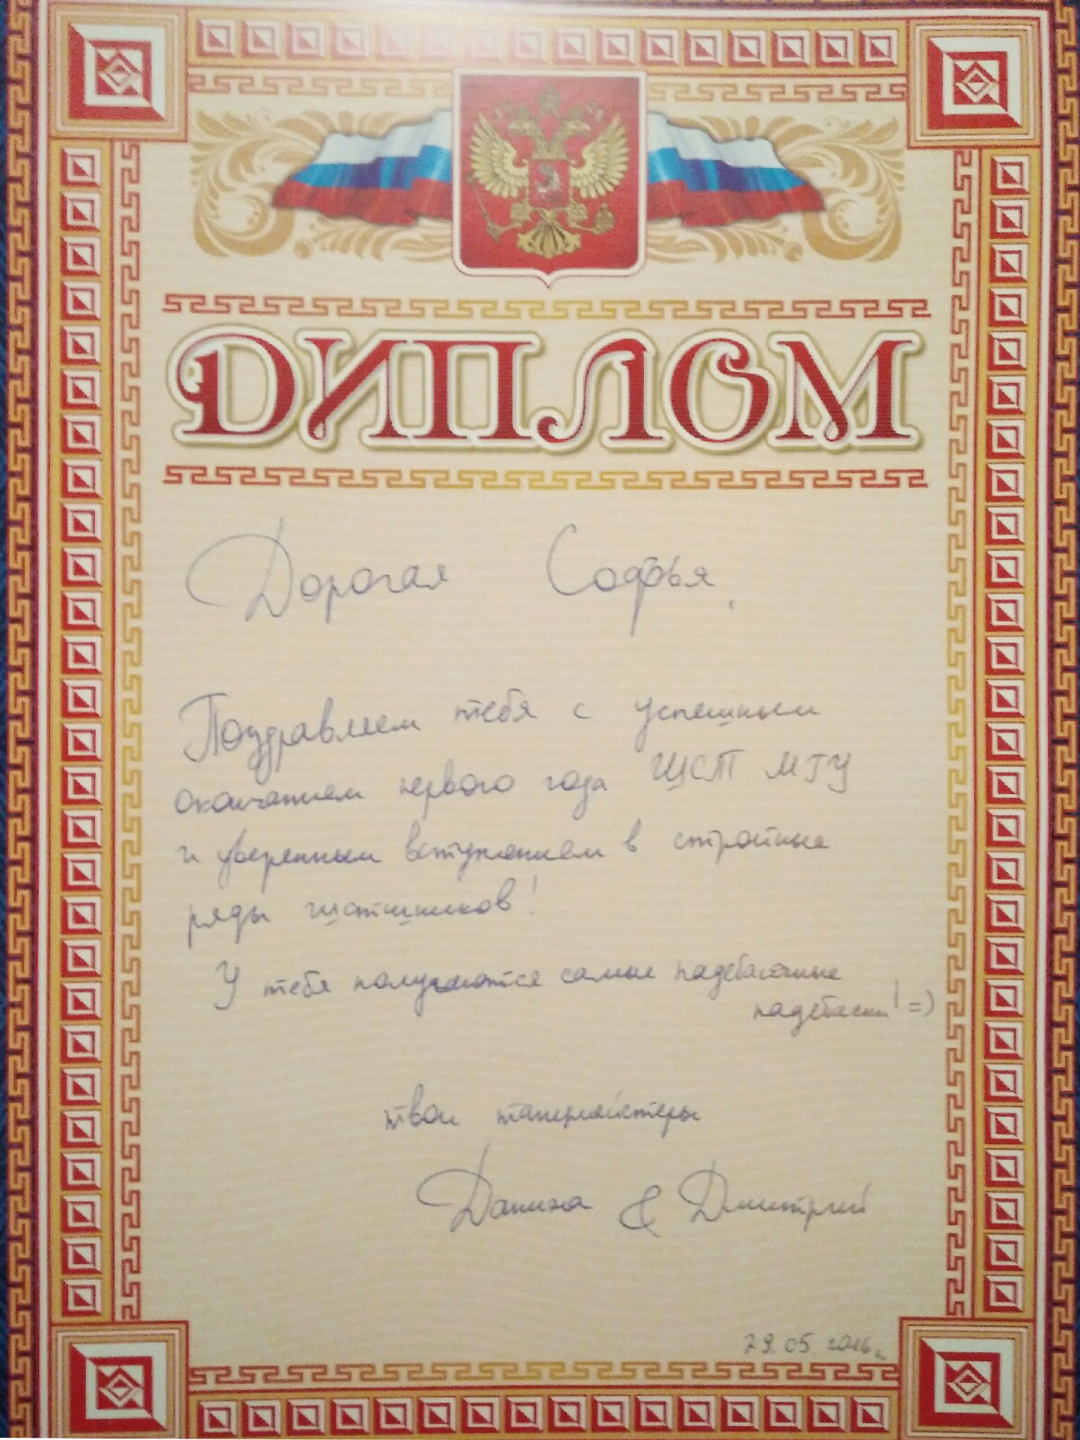 ДИПЛОМ
Дорогая Софья,
Поздравляем тебя с успешным
окончанием первого года ШСТ МГУ
и уверенным вступлением в стройные
ряды шстшников!
У тебя получаются самые падебасечные
падебаски! =)
твои танцмейстеры
Данина & Дмитрий
29.05.2016г.